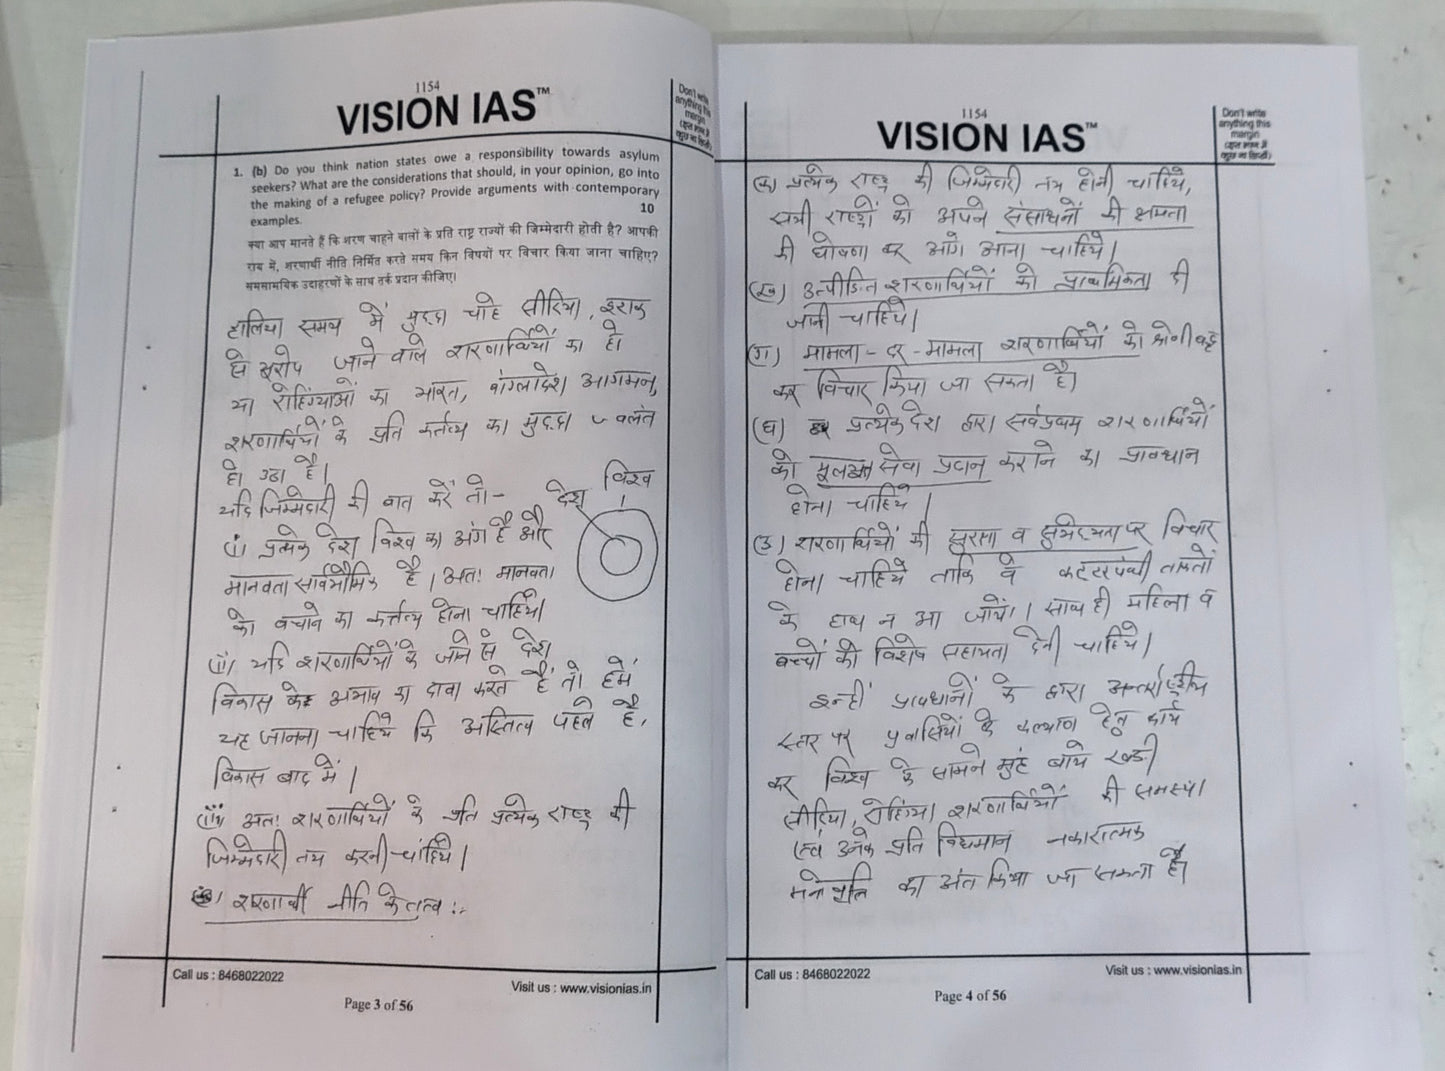 1154
VISION IAS™
Don't write
anything this
margin
(इस भाग में
कुछ ना लिखें)
1. (b) Do you think nation states owe a responsibility towards asylum
seekers? What are the considerations that should, in your opinion, go into
the making of a refugee policy? Provide arguments with contemporary
examples. 10
क्या आप मानते हैं कि शरण चाहने वालों के प्रति राष्ट्र राज्यों की जिम्मेदारी होती है? आपकी
राय में, शरणार्थी नीति निर्मित करते समय किन विषयों पर विचार किया जाना चाहिए?
समसामयिक उदाहरणों के साथ तर्क प्रदान कीजिए।
हालिया समय में मुद्दा चाहे सीरिया, इराक
से यूरोप जाने वाले शरणार्थियों का हो
या रोहिंग्याओं का भारत, बांग्लादेश आगमन,
शरणार्थियों के प्रति कर्तव्य का मुद्दा ज्वलंत
हो उठा है।
यदि जिम्मेदारी की बात करें तो-
देश विश्व
(i) प्रत्येक देश विश्व का अंग है और
मानवता सार्वभौमिक है। अतः मानवता
को बचाने का कर्त्तव्य होना चाहिये।
(ii) यदि शरणार्थियों के जाने से देश
विकास के अभाव का दावा करते हैं तो हमें
यह जानना चाहिये कि अस्तित्व पहले है,
विकास बाद में।
(iii) अतः शरणार्थियों के प्रति प्रत्येक राष्ट्र की
जिम्मेदारी तय करनी चाहिये।
शरणार्थी नीति के तत्व :-
Call us : 8468022022
Visit us : www.visionias.in
Page 3 of 56
1154
VISION IAS™
Don't write
anything this
margin
(इस भाग में
कुछ ना लिखें)
(क) प्रत्येक राष्ट्र की जिम्मेदारी तय होनी चाहिये,
सभी राष्ट्रों को अपने संसाधनों की क्षमता
की घोषणा कर आगे आना चाहिये।
(ख) उत्पीड़ित शरणार्थियों को प्राथमिकता दी
जानी चाहिये।
(ग) मामला-दर-मामला शरणार्थियों को श्रेणीबद्ध
कर विचार किया जा सकता है।
(घ) प्रत्येक देश द्वारा सर्वप्रथम शरणार्थियों
को मूलभूत सेवा प्रदान कराने का प्रावधान
होना चाहिये।
(ङ) शरणार्थियों की सुरक्षा व सुभेद्यता पर विचार
होना चाहिये ताकि वे कट्टरपंथी ताकतों
के हाथ न आ जायें। साथ ही महिला व
बच्चों को विशेष सहायता देनी चाहिये।
इन्हीं प्रावधानों के द्वारा अन्तर्राष्ट्रीय
स्तर पर प्रवासियों के कल्याण हेतु कार्य
कर विश्व के सामने मुंह बाये खड़ी
सीरिया, रोहिंग्या शरणार्थियों की समस्या
एवं उनके प्रति विद्यमान नकारात्मक
मनोवृत्ति का अंत किया जा सकता है।
Call us : 8468022022
Visit us : www.visionias.in
Page 4 of 56